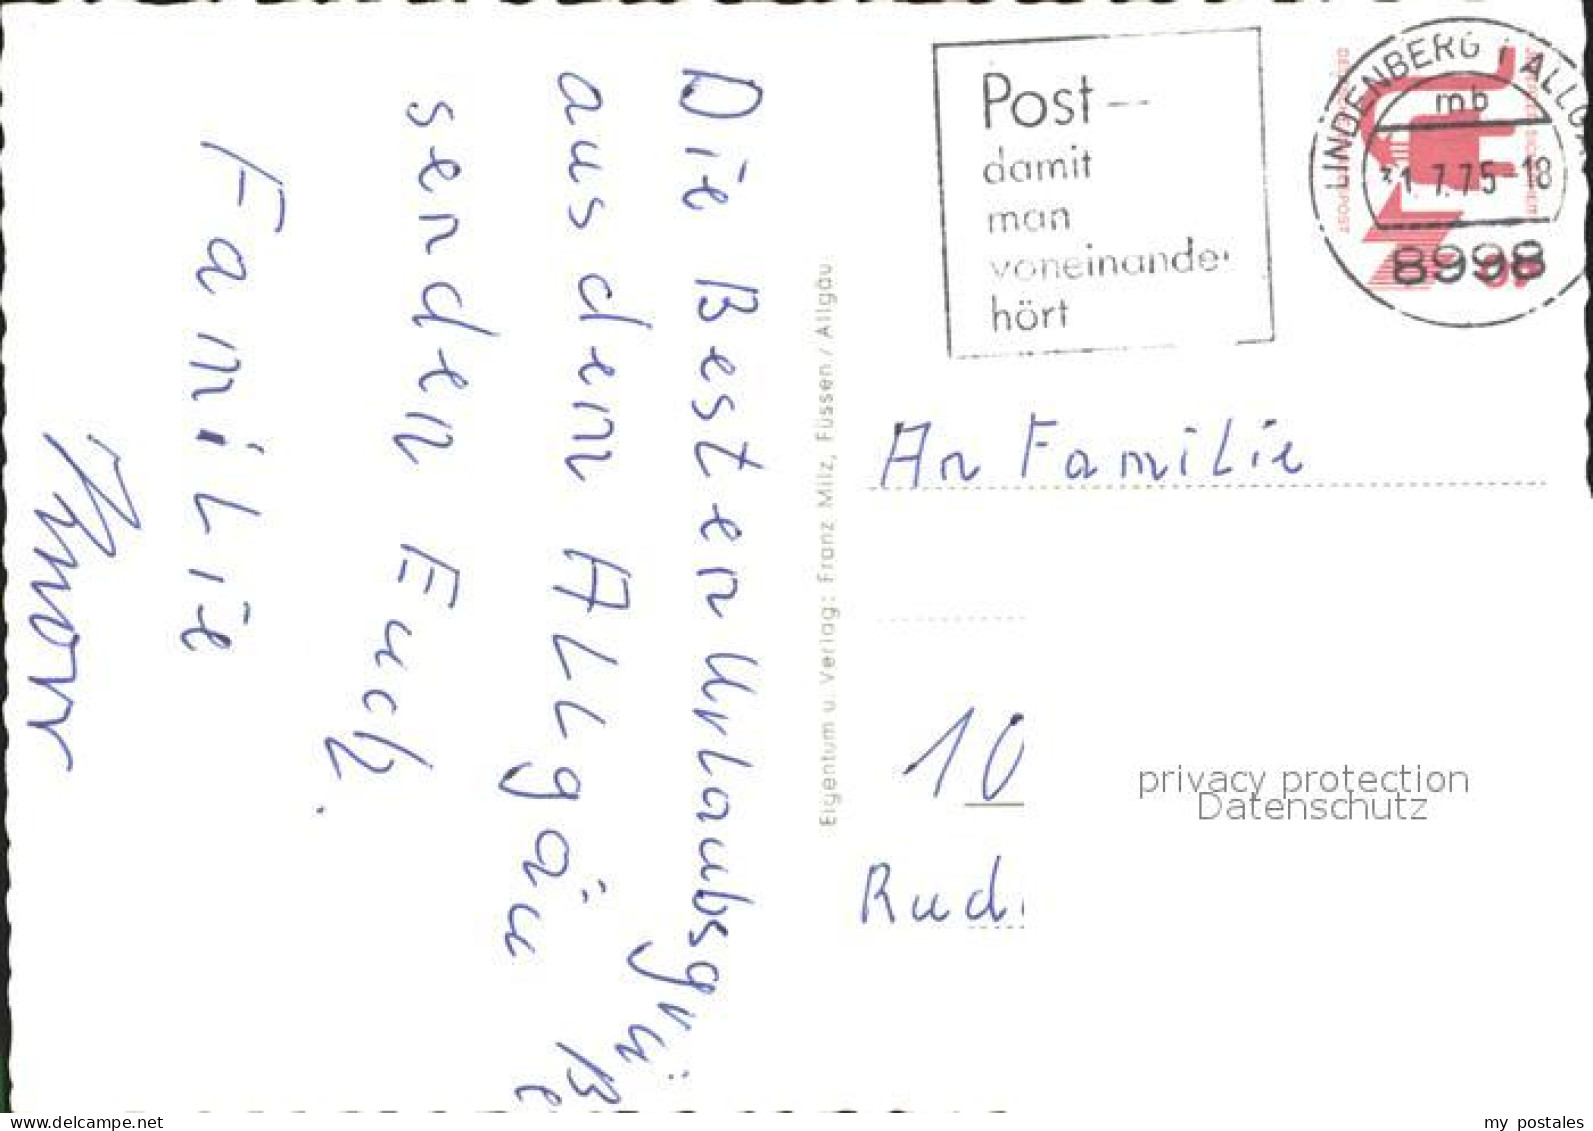 Die Besten Urlaubsgrüße
aus dem ALLgäu
senden Euch.
FamiLie
Knorr
Eigentum u. Verlag: Franz Milz, Füssen / Allgäu
Post—
damit
man
voneinander
hört
LINDENBERG i ALLGÄ
mb
31.7.75-18
8998
DEUTSCHE BUNDESPOST
JEDERZEIT SICHERHEIT
An FamiLie
10
Rudi
privacy protection
Datenschutz
www.delcampe.net
my postales